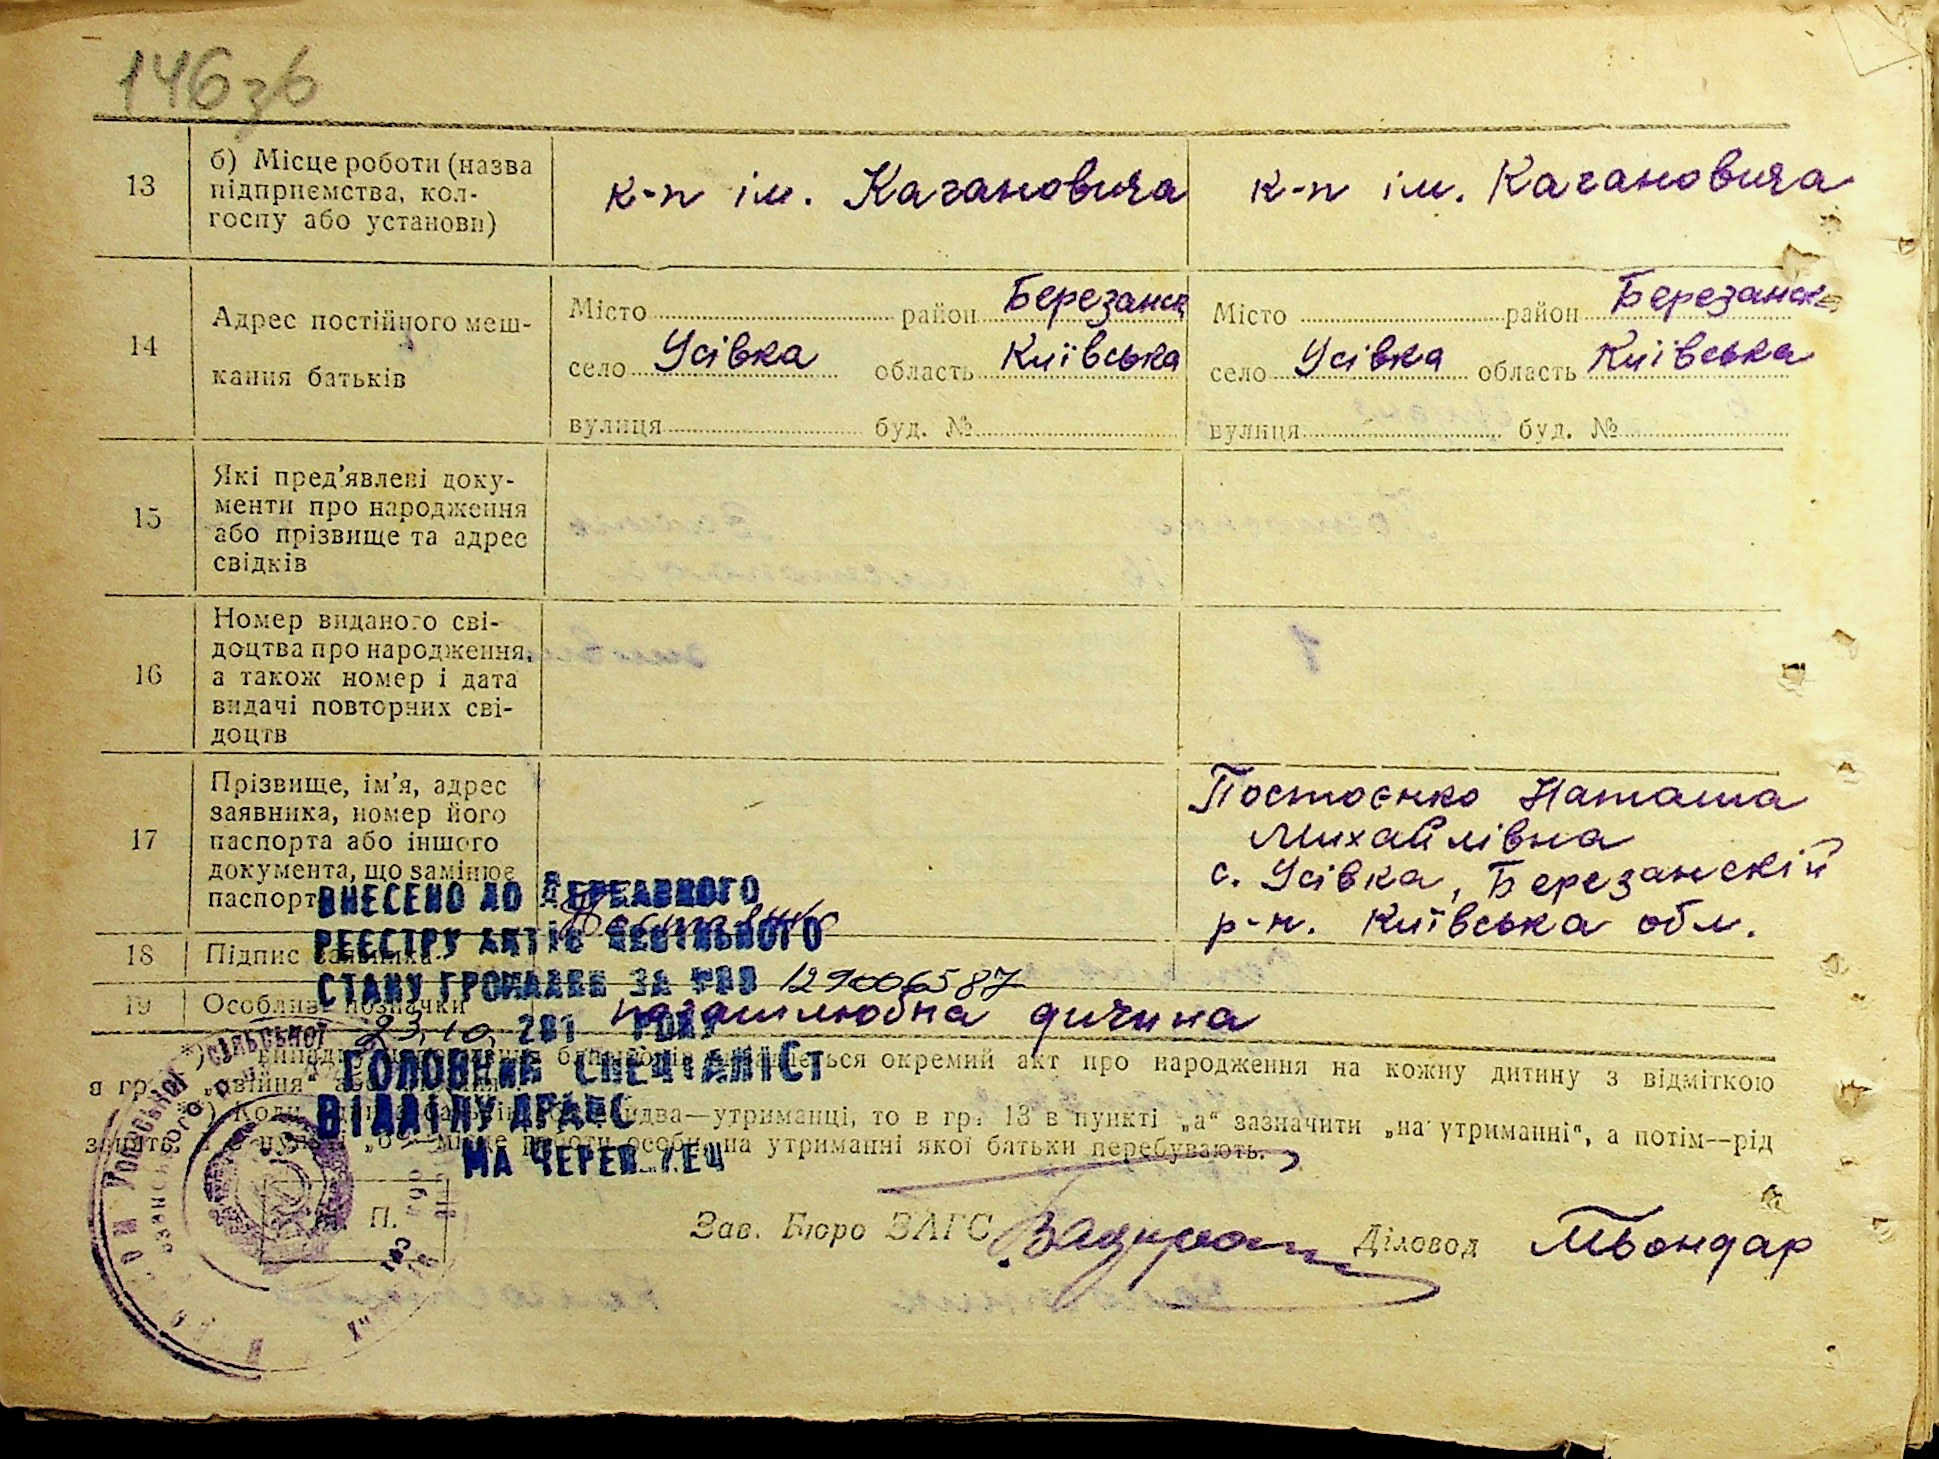 146 зв
13
б) Місце роботи (назва
підприємства, кол-
госпу або установи)
к-п ім. Кагановича
к-п ім. Кагановича
14
Адрес постійного меш-
кання батьків
Місто район Березанск
село Усівка область Київська
вулиця буд. №
Місто район Березанск
село Усівка область Київська
вулиця буд. №
15
Які пред'явлені доку-
менти про народження
або прізвище та адрес
свідків
16
Номер виданого сві-
доцтва про народження,
а також номер і дата
видачі повторних сві-
доцтв
17
Прізвище, ім'я, адрес
заявника, номер його
паспорта або іншого
документа, що замінює
паспорт
Постоєнко Наташа
Михайлівна
с. Усівка, Березанскій
р-н. Київська обл.
18
Підпис заявника
19
Особливі позначки
дичина
ВНЕСЕНО ДО ДЕРЖАВНОГО
РЕЄСТРУ АКТІВ ЦИВІЛЬНОГО
СТАНУ ГРОМАДЯН ЗА №
23.10. 201 РОКУ
ГОЛОВНИЙ СПЕЦІАЛІСТ
ВІДДІЛУ ДРАЦС
окремий акт про народження на кожну дитину з відміткою
в гр. „двійня"
утриманці, то в гр. 13 в пункті „а" зазначити „на утриманні", а потім—рід
на утриманні якої батьки перебувають.
П.
Зав. Бюро ЗАГС
Діловод